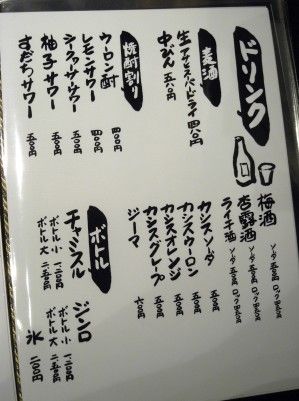 ドリンク
麦酒
生 アサヒスーパードライ 四八〇円
中びん 五八〇円
焼酎割り
ウーロン酎 四〇〇円
レモンサワー 四〇〇円
シークヮーサーサワー 五〇〇円
柚子サワー 五〇〇円
すだちサワー 五〇〇円
梅酒 ソーダ 五〇〇円 ロック 四五〇円
杏露酒 ソーダ 五〇〇円 ロック 四五〇円
ライチ酒 ソーダ 五〇〇円 ロック 四五〇円
カシスソーダ 五〇〇円
カシスウーロン 五〇〇円
カシスオレンジ 五〇〇円
カシスグレープ 五〇〇円
ジーマ 六〇〇円
ボトル
チャミスル
ボトル小 一二〇〇円
ボトル大 二五〇〇円
ジンロ
ボトル小 一二〇〇円
ボトル大 二五〇〇円
氷 二〇〇円